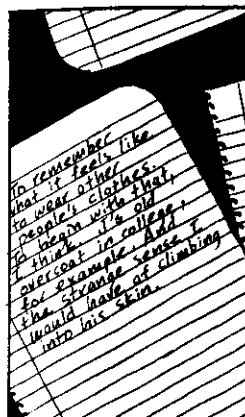 To remember
what it feels like
to wear other
people's clothes.
To begin with that,
I think. 's old
overcoat in college,
for example. And
the strange sense I
would have of climbing
into his skin.